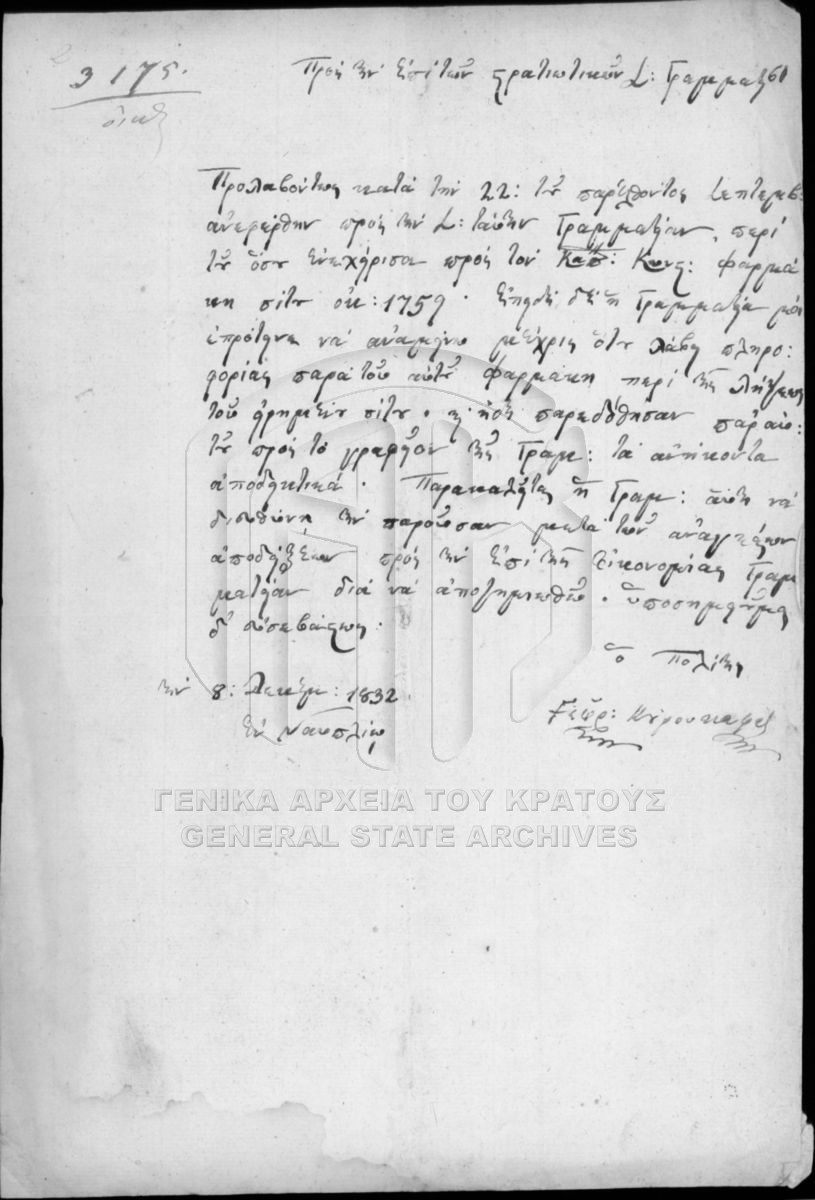 3175.
Πρὸς τὴν ἐπὶ τῶν στρατιωτικῶν Σ: Γραμματεί
Προλαβόντως κατὰ τὴν 22: τοῦ παρελθόντος Σεπτεμβ:
ἀνεφέρθην πρὸς τὴν Σ: ταύτην Γραμματείαν, περὶ
τοῦ ὅσου ἐνεχείρισα πρὸς τὸν Καπ: Κωνς: Φαρμά
κη σίτου ὀκ: 1759. Ἐπειδὴ δὲ ἡ Γραμματεία μοὶ
ἐπρότεινε νὰ ἀναμείνω μέχρις ὅτου λάβῃ πληρο:
φορίας παρὰ τοῦ αὐτοῦ Φαρμάκη περὶ τῆς λήψεως
τοῦ εἰρημένου σίτου. ἤδη παρεδόθησαν παρ' αὐ:
τοῦ πρὸς τὸ γραφεῖον τῆς Γραμ: τὰ ἀνήκοντα
ἀποδεικτικά. Παρακαλεῖται ἡ Γραμ: αὕτη νὰ
διευθύνῃ τὴν παροῦσαν μετὰ τῶν ἀναγκαίων
ἀποδείξεων πρὸς τὴν ἐπὶ τῆς Οἰκονομίας Γραμ
ματείαν διὰ νὰ ἀποζημιωθῶ. ὑποσημειοῦμαι
δ' εὐσεβάστως.
ὁ Πολίτης
τὴν 8: Δεκεμ: 1832.
Ἐν Ναυπλίῳ
Γεώρ:
ΓΕΝΙΚΑ ΑΡΧΕΙΑ ΤΟΥ ΚΡΑΤΟΥΣ
GENERAL STATE ARCHIVES